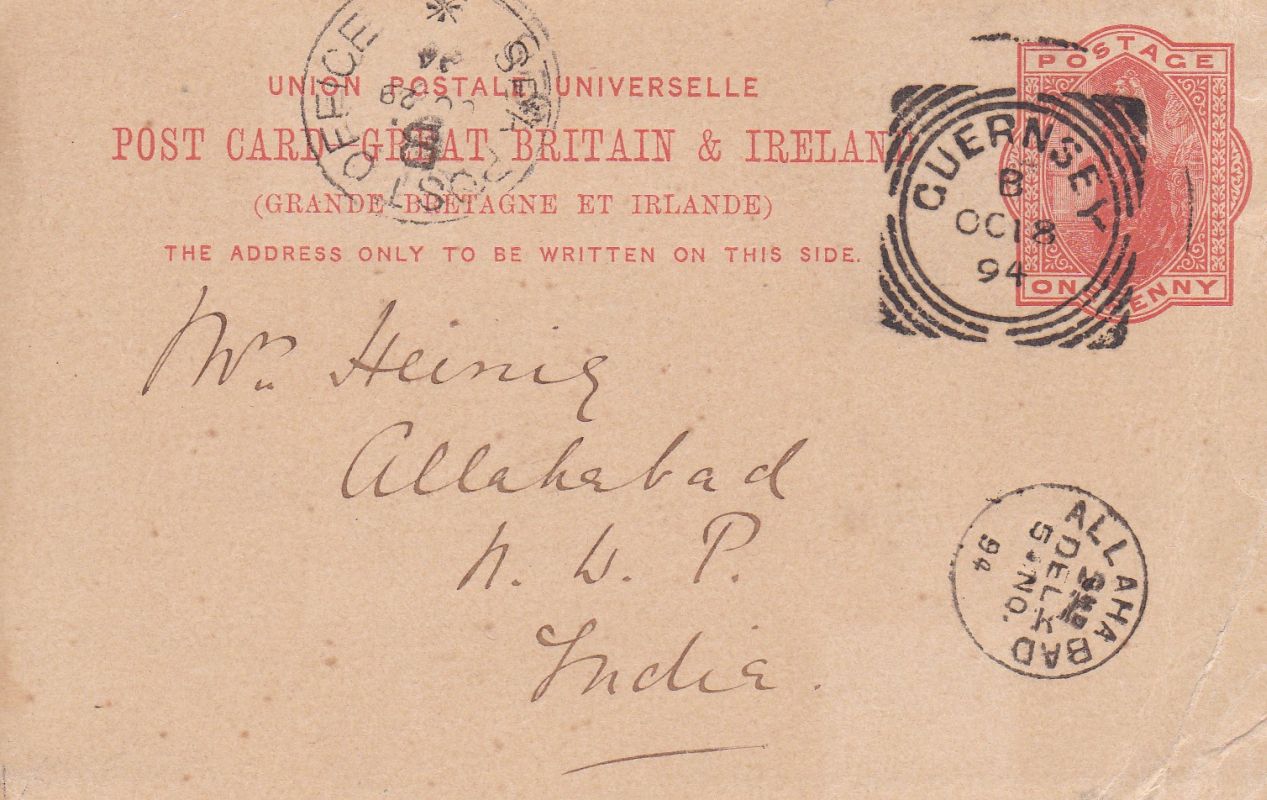 UNION POSTALE UNIVERSELLE
POST CARD GREAT BRITAIN & IRELAND
(GRANDE BRETAGNE ET IRLANDE)
THE ADDRESS ONLY TO BE WRITTEN ON THIS SIDE.
POSTAGE
ONE PENNY
GUERNSEY
B
OC 18
94
SEA POST OFFICE
B
OC 29
94
Heinig
Allahabad
N. W. P.
India.
ALLAHABAD
DEL
5 NO.
94